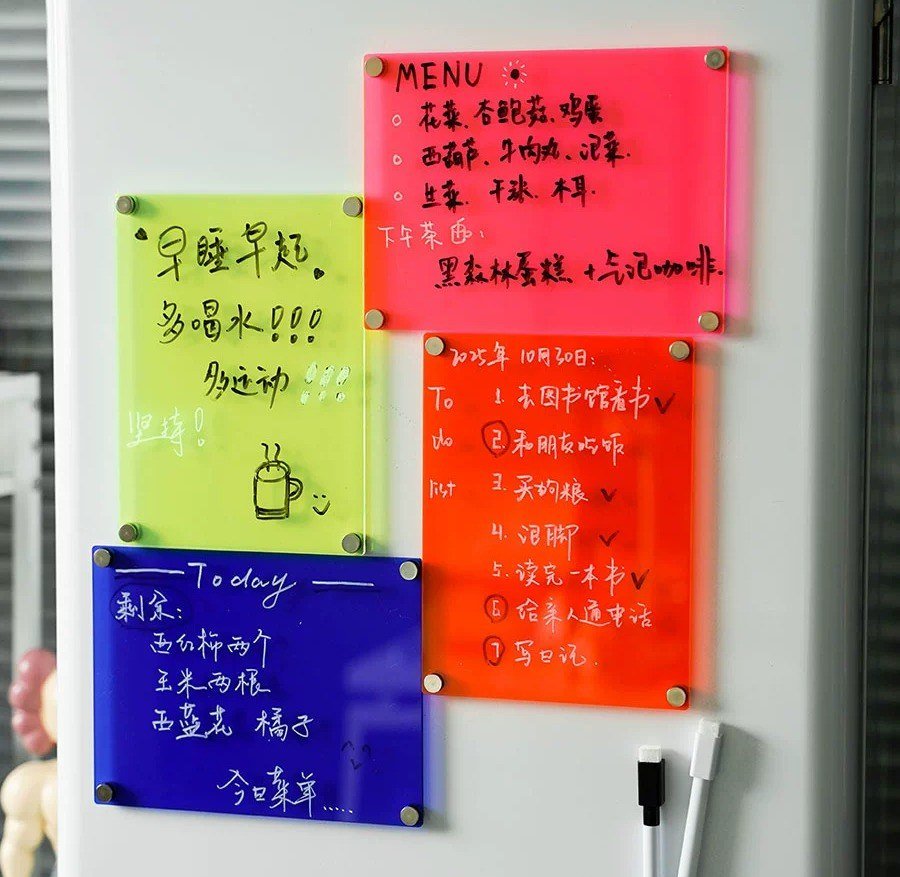 MENU
花菜、杏鲍菇、鸡蛋
西葫芦、牛肉丸、泡菜.
生菜、干张、木耳.
下午茶西:
黑森林蛋糕+气泡咖啡.
早睡早起.
多喝水!!!
多运动!!!
坚持!
2025年 10月30日:
To do list
1. 去图书馆看书 ✓
2. 和朋友吃饭
3. 买狗粮 ✓
4. 泡脚 ✓
5. 读完一本书 ✓
6. 给亲人通电话
7 写日记.
— Today —
剩余:
西红柿两个
玉米两根
西蓝花 橘子
今日菜单.....